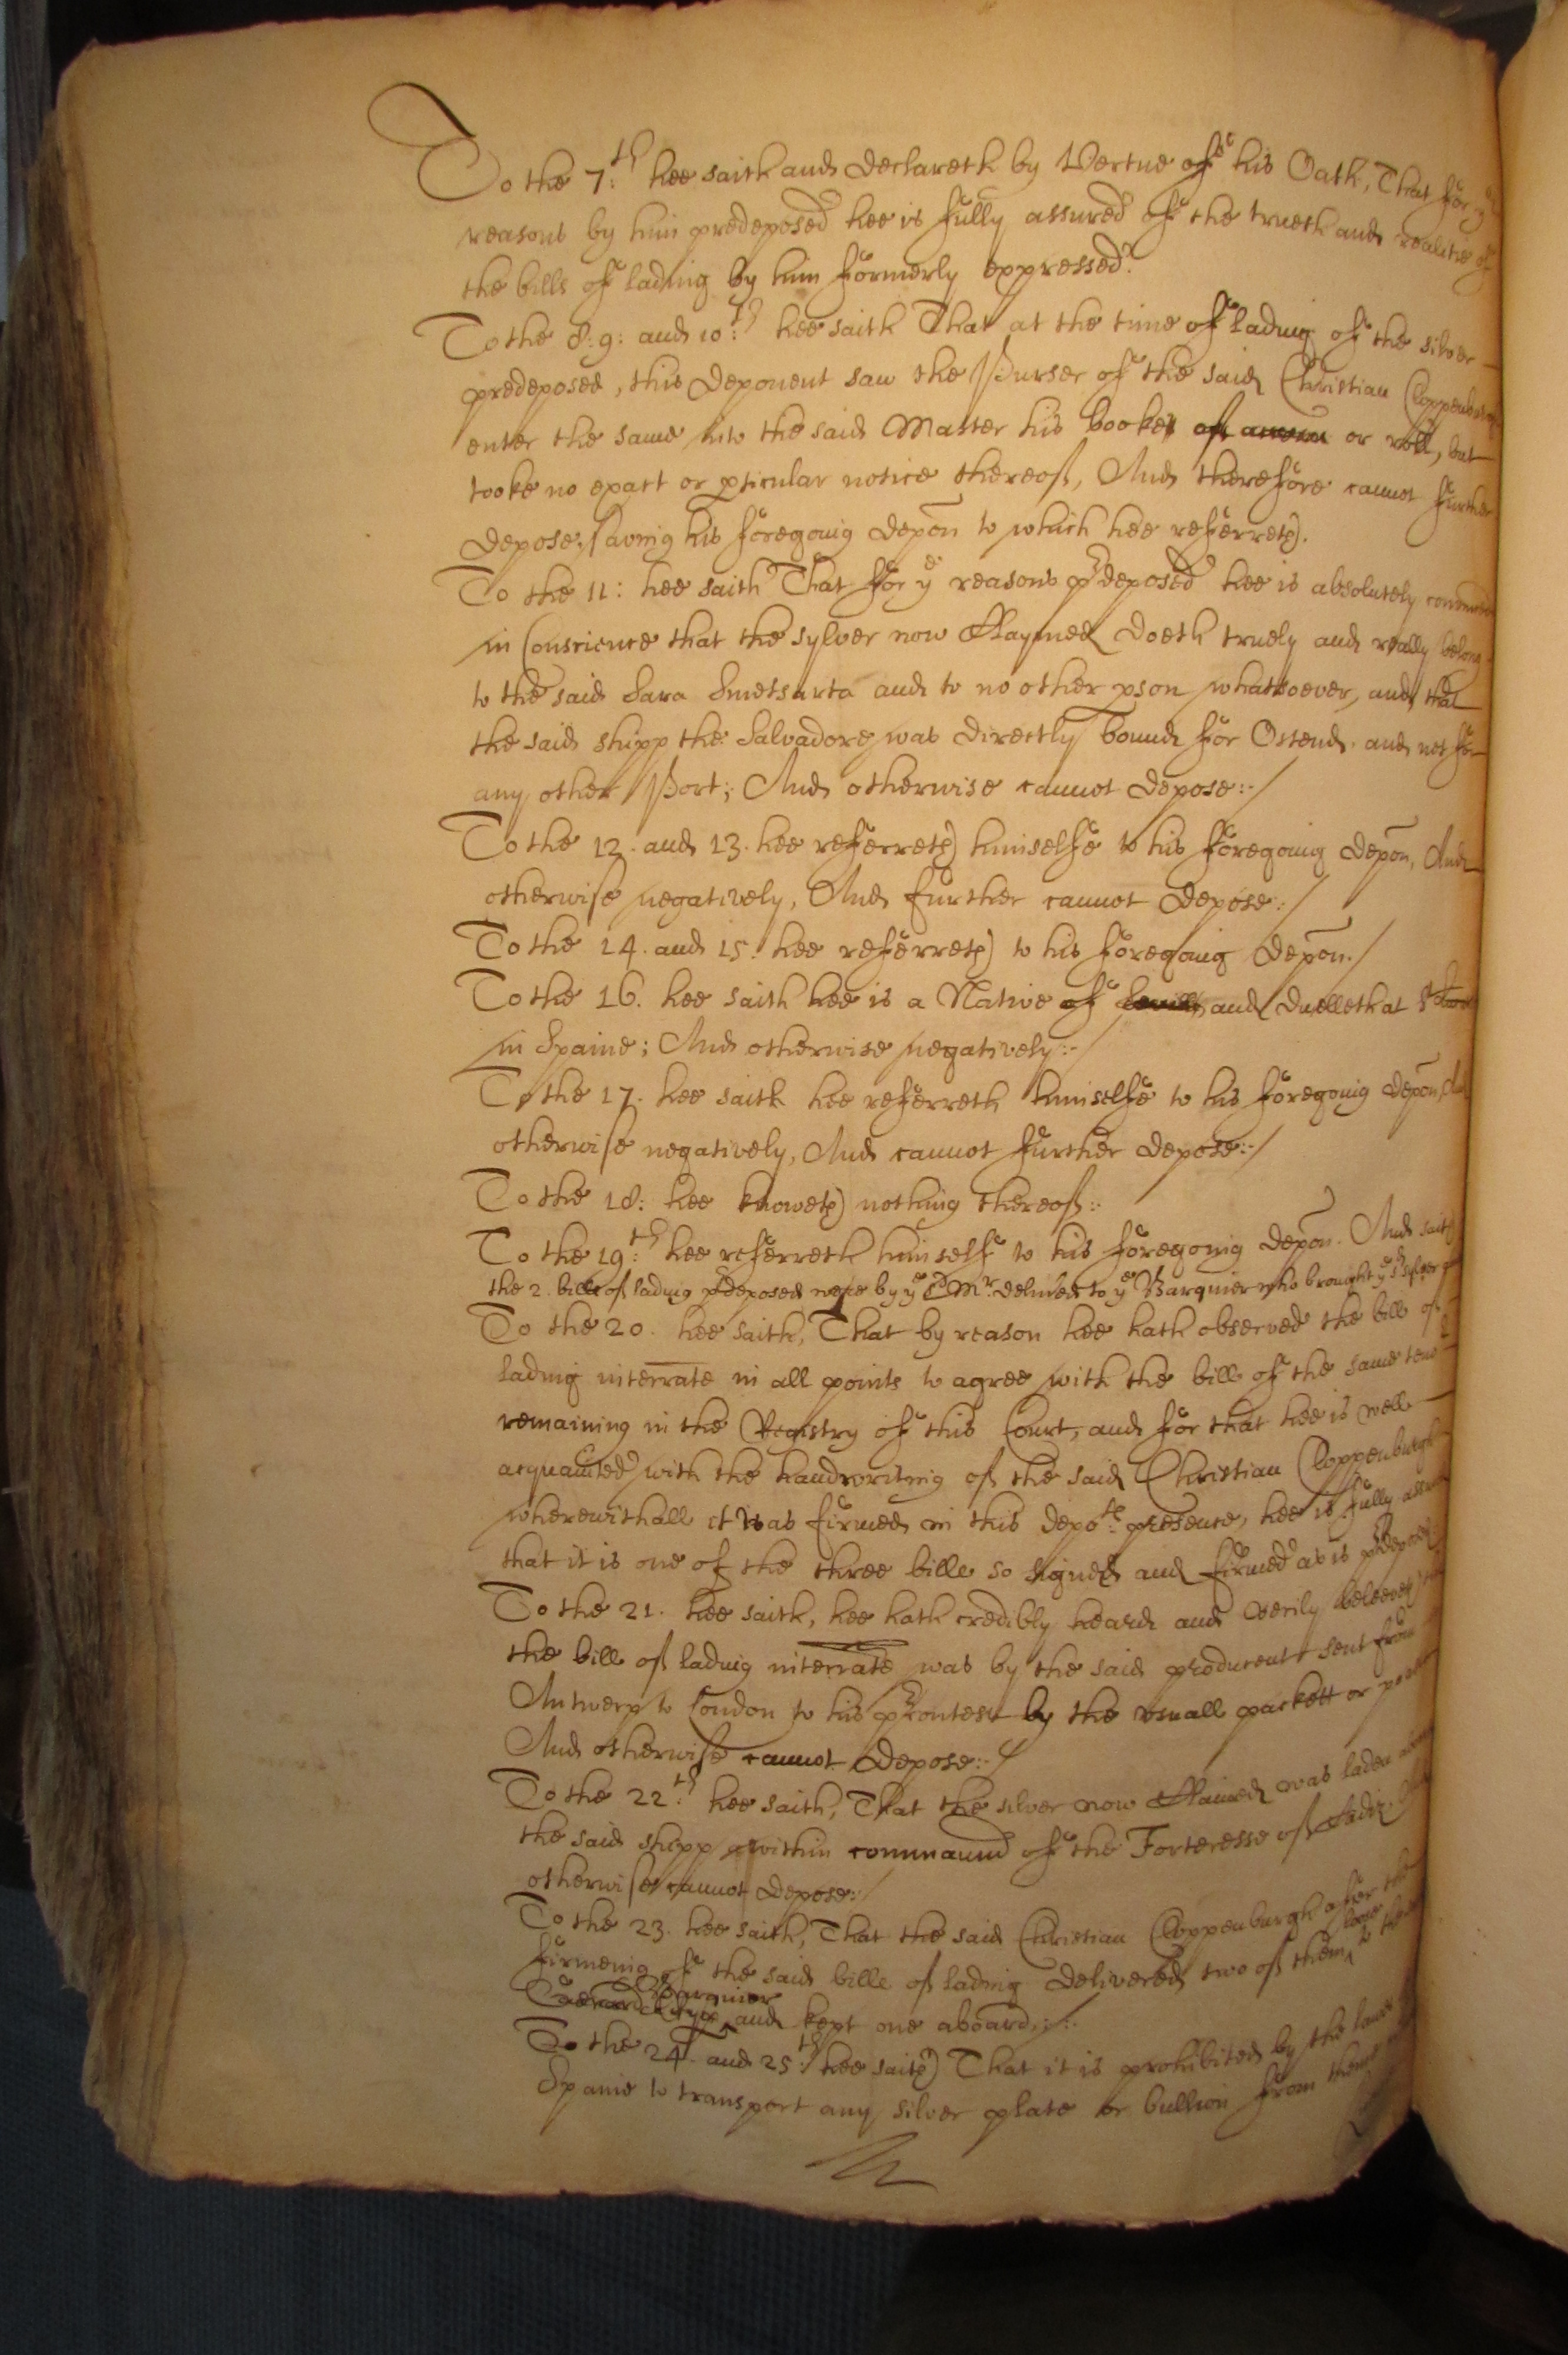 To the 7:th hee saith and declareth by Vertue of his Oath, That for ye
reasons by him predeposed hee is fully assured of the trueth and realitie of
the bills of lading by him formerly expressed.
To the 8: 9: and 10:th hee saith That at the time of lading of the silver
predeposed, this deponent saw the Purser of the said Christian Cloppenburgh
enter the same into the said Master his booke or roll, but
tooke no exact or pticular notice thereof, And therefore cannot further
depose, saving his foregoing depon to which hee referreth.
To the 11: hee saith That for ye reasons pdeposed hee is absolutely convinced
in Conscience that the sylver now Claymed doeth truely and really belong
to the said Sara Smetsarta and to no other pson whatsoever, and that
the said shipp the Salvadore was directly bound for Ostend, and not for
any other Port; And otherwise cannot depose:-/
To the 12. and 13. hee referreth himselfe to his foregoing depon, And
otherwise negatively, And further cannot depose:/
To the 14. and 15: hee referreth to his foregoing depon./
To the 16. hee saith hee is a Native of and dwelleth at
in Spaine; And otherwise negatively:-/
To the 17. hee saith hee referreth himselfe to his foregoing depon, And
otherwise negatively, And cannot further depose:-/
To the 18: hee knoweth nothing thereof:-
To the 19:th hee referreth himself to his foregoing depon. And saith
the 2. bills of lading pdeposed were by ye sd Mr. delivered to ye Barquier who brought ye sd sylver
To the 20. hee saith, That by reason hee hath observed the bill of
lading interrate in all points to agree with the bill of the same tenor
remaining in the Registry of this Court, and for that hee is well
acquainted with the handwriting of the said Christian Cloppenburgh
wherewithall it was firmed in this depots: presence, hee is fully assured
that it is one of the three bills so signed and firmed as is pdeposed.
To the 21. hee saith, hee hath credibly heard and verily beleeveth
the bill of lading interrate was by the said producent sent from
Antwerp to London to his by the usuall packett or
And otherwise cannot depose:-/
To the 22:th hee saith, That the silver now Claimed was laden
the said shipp within command of the Forteresse of Cadiz
otherwise cannot depose:/
To the 23. hee saith, That the said Christian Cloppenburgh after the
firmeing of the said bills of lading delivered two of them to the
Barquier and kept one aboard.:-:
To the 24. and 25:th hee saith That it is prohibited by the lawes
Spaine to transport any silver plate or bullion from thence